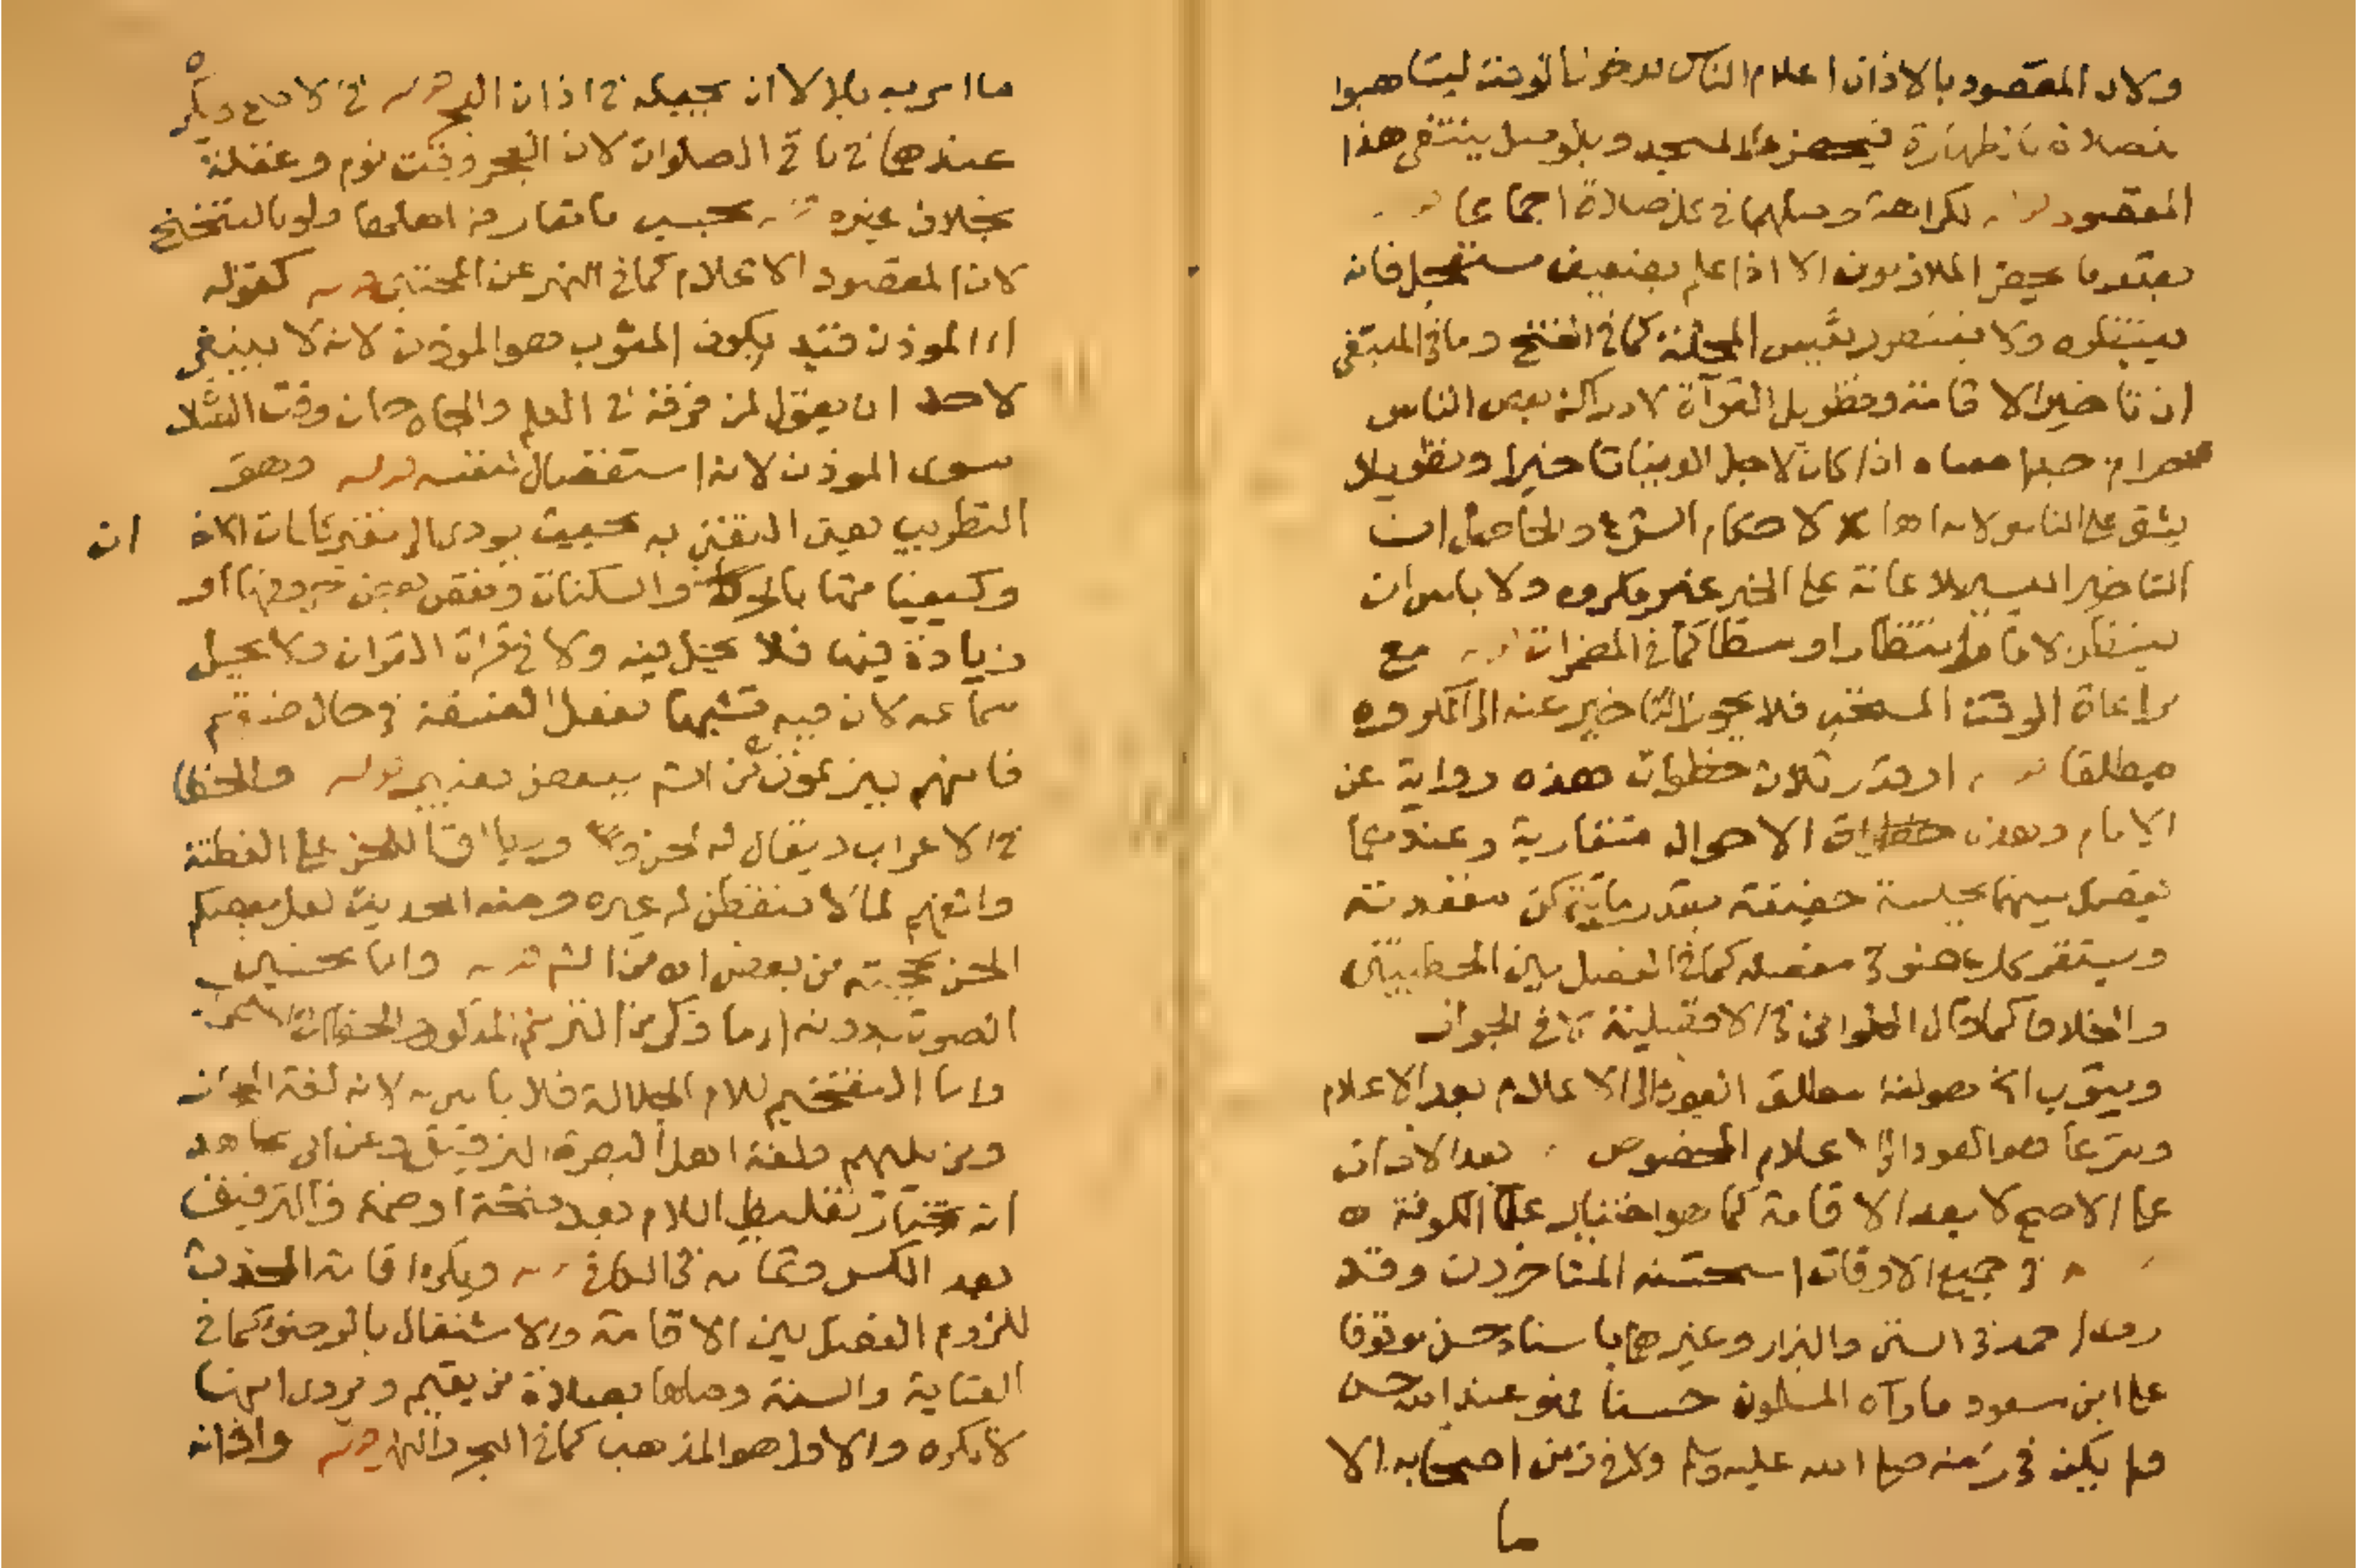 ولان المقصود بالاذان اعلام الناس بدخول الوقت ليتاهبوا
للصلاة بالطهارة فيحضروا المسجد وبالوصل ينتفي هذا
المقصود قوله لكراهة وصلها في كل صلاة اجماعا قوله
بقدر ما يحضر الملازمون الا اذا علم بضعيف مستعجل فانه
ينتظره ولا ينتظر رئيس المحلة كما في الفتح وما في المبتغى
ان تاخير الاقامة وتطويل القرآة لادراك بعض الناس
حرام معناه اذا كان لاجل الدنيا تاخيرا وتطويلا
يشق على الناس لانه اهانة لاحكام الشرع والحاصل ان
التاخير اليسير للاعانة على الخير غير مكروه ولا باس ان
ينتظر الامام انتظارا وسطا كما في المضمرات قوله مع
مراعاة الوقت المستحب فلا يجوز التاخير عنه الى المكروه
مطلقا قوله او قدر ثلاث خطوات هذه رواية عن
الامام وهذه الاحوال متقاربة وعندهما
يفصل بينهما بجلسة خفيفة بقدر ما تتمكن مقعدته
ويستقر كل عضو في مفصله كما في الفصل بين الخطبتين
والخلاف كما قال الحلواني في الافضلية لا في الجواز
ويثوب الخ هو لغة مطلق العود الى الاعلام بعد الاعلام
وشرعا هو العود الى الاعلام المخصوص قوله بعد الاذان
على الاصح لا بعد الاقامة كما هو اختيار علماء الكوفة
قوله في جميع الاوقات استحسنه المتاخرون وقد
روى احمد في السنن والبزار وغيرهما باسناد حسن موقوفا
على ابن مسعود ما رآه المسلمون حسنا فهو عند الله حسن
ولم يكن في زمنه صلى الله عليه وسلم ولا في زمن اصحابه الا
ما
ما امر به بلالا ان يجعله في اذان الفجر قوله في الاصح ويكره
عندهما في باقي الصلوات لان الفجر وقت نوم وغفلة
بخلاف غيره قوله بحسب ما تعارفه اهلها ولو بالتنحنح
لان المقصود الاعلام كما في النهر عن المجتبى قوله كقوله
اي المؤذن قيد بكون المثوب هو المؤذن لانه لا ينبغي
لاحد ان يقول لمن فوقه في العلم والجاه حان وقت الصلاة
سوى المؤذن لانه استفضال لنفسه قوله وهو
التطريب يعني التغني به بحيث يؤدي الى تغير كلمات الاذان
وكيفياتها بالحركات والسكنات ونقص بعض حروفها او
زيادة فيها فلا يحل فيه ولا في قراة القران ولا يحل
سماعه لان فيه تشبها بفعل الفسقة في حال فسقهم
فانهم يترنمون كن الشر ببعض تغيير قوله والخطا
في الاعراب ويقال له لحن وربما قال اللحن على الفطنة
والفهم لما لا يتفطن له غيره ومنه الحديث لعل بعضكم
الحن بحجته من بعض اه من الشر قوله واما تحسين
الصوت بدونه اي ما ذكر من الترنم المذكور والخطا في الاعراب
واما التفخيم للام الجلالة فلا باس به لانه لغة اهل
ومن يليهم ولغة اهل البصرة الترقيق وعن ابي مجاهد
انه يختار تغليظ اللام بعد فتحة او ضمة والترقيق
بعد الكسر وتمامه في الكافي قوله ويكره اقامة المحدث
للزوم الفصل بين الاقامة والاشتغال بالوضوء كما في
العناية والسنة وصلها بصلاة من يقيم ويروى انها
لا تكره والاول هو المذهب كما في البحر والنهر قوله واذانه